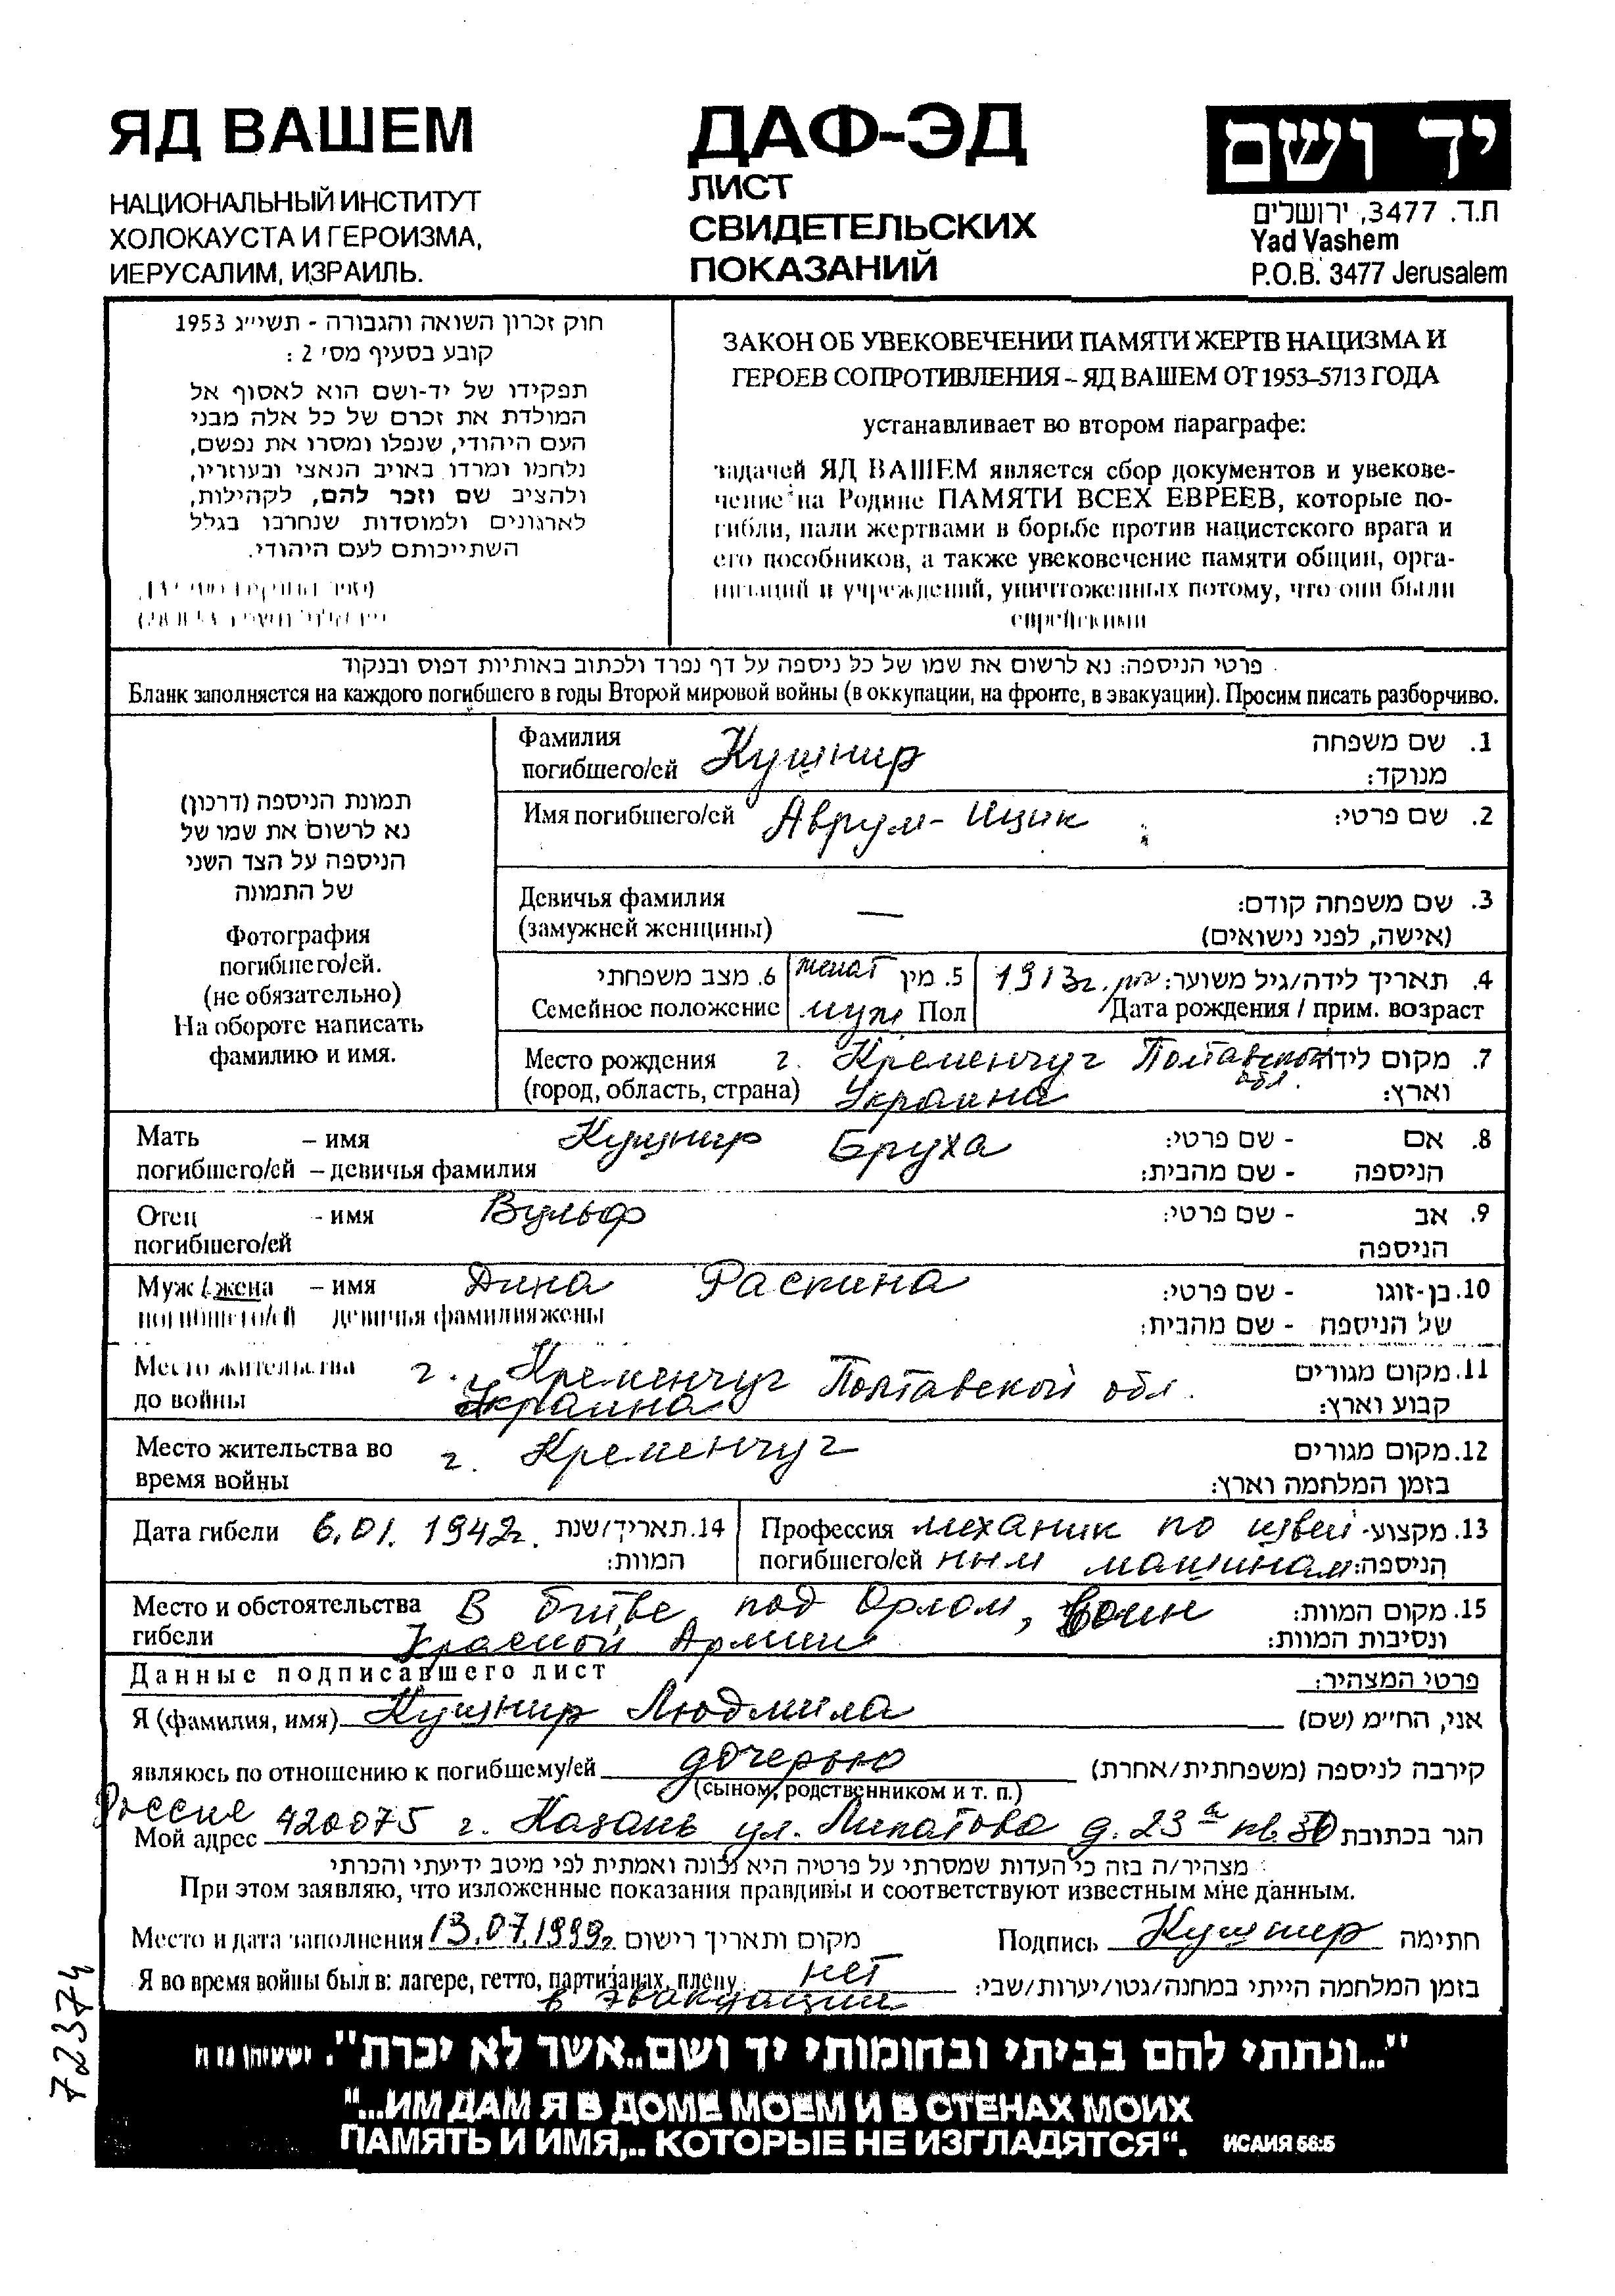 ЯД ВАШЕМ
НАЦИОНАЛЬНЫЙ ИНСТИТУТ
ХОЛОКАУСТА И ГЕРОИЗМА,
ИЕРУСАЛИМ, ИЗРАИЛЬ.
ДАФ-ЭД
ЛИСТ
СВИДЕТЕЛЬСКИХ
ПОКАЗАНИЙ
יד ושם
ת.ד. 3477, ירושלים
Yad Vashem
P.O.B. 3477 Jerusalem
חוק זכרון השואה והגבורה - תשי״ג 1953
קובע בסעיף מס' 2 :
תפקידו של יד-ושם הוא לאסוף אל
המולדת את זכרם של כל אלה מבני
העם היהודי, שנפלו ומסרו את נפשם,
נלחמו ומרדו באויב הנאצי ובעוזריו,
ולהציב שם וזכר להם, לקהילות,
לארגונים ולמוסדות שנחרבו בגלל
השתייכותם לעם היהודי.
ЗАКОН ОБ УВЕКОВЕЧЕНИИ ПАМЯТИ ЖЕРТВ НАЦИЗМА И
ГЕРОЕВ СОПРОТИВЛЕНИЯ – ЯД ВАШЕМ ОТ 1953–5713 ГОДА
устанавливает во втором параграфе:
задачей ЯД ВАШЕМ является сбор документов и увекове-
чение на Родине ПАМЯТИ ВСЕХ ЕВРЕЕВ, которые по-
гибли, пали жертвами в борьбе против нацистского врага и
его пособников, а также увековечение памяти общин, орга-
низаций и учреждений, уничтоженных потому, что они были
еврейскими
פרטי הניספה: נא לרשום את שמו של כל ניספה על דף נפרד ולכתוב באותיות דפוס ובנקוד
Бланк заполняется на каждого погибшего в годы Второй мировой войны (в оккупации, на фронте, в эвакуации). Просим писать разборчиво.
תמונת הניספה (דרכון)
נא לרשום את שמו של
הניספה על הצד השני
של התמונה
Фотография
погибшего/ей.
(не обязательно)
На обороте написать
фамилию и имя.
Фамилия Кушнир 1. שם משפחה
погибшего/ей מנוקד:
Имя погибшего/ей Аврум-Ицик 2. שם פרטי:
Девичья фамилия — 3. שם משפחה קודם:
(замужней женщины) (אישה, לפני נישואים)
6. מצב משפחתי женат 5. מין 1913г. 4. תאריך לידה/גיל משוער:
Семейное положение муж Пол Дата рождения / прим. возраст
Место рождения г. Кременчуг Полтавской обл. 7. מקום לידה
(город, область, страна) Украина וארץ:
Мать – имя Кушнир Бруха 8. אם - שם פרטי:
погибшего/ей – девичья фамилия הניספה - שם מהבית:
Отец - имя Вульф 9. אב - שם פרטי:
погибшего/ей הניספה
Муж / жена – имя Дина Раскина 10. בן-זוגו - שם פרטי:
погибшего/ей девичья фамилия жены של הניספה - שם מהבית:
Место жительства г. Кременчуг Полтавской обл. 11. מקום מגורים
до войны Украина קבוע וארץ:
Место жительства во г. Кременчуг 12. מקום מגורים
время войны בזמן המלחמה וארץ:
Дата гибели 6.01.1942г. 14. תאריך/שנת המוות:
Профессия механик по швей- 13. מקצוע
погибшего/ей ным машинам הניספה:
Место и обстоятельства В битве под Орлом, воин 15. מקום המוות:
гибели Красной Армии ונסיבות המוות:
Данные подписавшего лист פרטי המצהיר:
Я (фамилия, имя) Кушнир Людмила אני, החי״מ (שם)
являюсь по отношению к погибшему/ей дочерью קירבה לניספה (משפחתית/אחרת)
(сыном, родственником и т. п.)
Россия
Мой адрес 420075 г. Казань ул. Липатова д. 23а кв. 50 הגר בכתובת
מצהיר/ה בזה כי העדות שמסרתי על פרטיה היא נכונה ואמתית לפי מיטב ידיעתי והכרתי
При этом заявляю, что изложенные показания правдивы и соответствуют известным мне данным.
Место и дата заполнения 13.07.1999г. מקום ותאריך רישום Подпись Кушнир חתימה
Я во время войны был в: лагере, гетто, партизанах, плену нет בזמן המלחמה הייתי במחנה/גטו/יערות/שבי:
в эвакуации
72374
"...ונתתי להם בביתי ובחומותי יד ושם..אשר לא יכרת". ישעיהו נו ה
"...ИМ ДАМ Я В ДОМЕ МОЕМ И В СТЕНАХ МОИХ
ПАМЯТЬ И ИМЯ,.. КОТОРЫЕ НЕ ИЗГЛАДЯТСЯ". ИСАИЯ 56:5